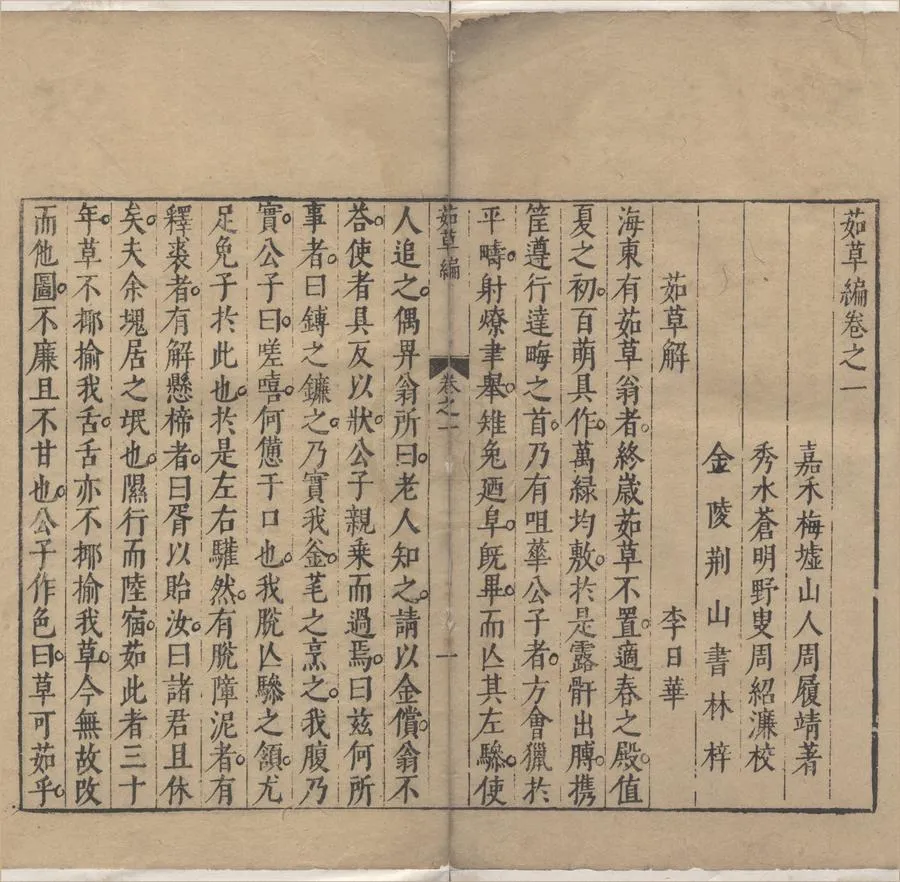 茹草編卷之一
嘉禾梅墟山人周履靖著
秀水蒼明野叟周紹濂校
金陵荆山書林梓
茹草解 李日華
海東有茹草翁者終歲茹草不置適春之殿值
夏之初百萌具作萬緑均敷於是露骭出膊携
筐遵行達畮之首乃有咀華公子者方會獵於
平疇射燎聿舉雉兔廼阜旣畢而亾其左驂使
茹草編 卷之一 一
人追之偶畀翁所曰老人知之請以金償翁不
荅使者具反以狀公子親乘而過焉曰兹何所
事者曰鎛之鐮之乃實我釡芼之烹之我腹乃
實公子曰嗟嘻何憊于口也我脫亾驂之頟尤
足免子於此也於是左右驩然有脫障泥者有
釋裘者有解懸楴者曰胥以貽汝曰諸君且休
矣夫余塊居之氓也隰行而陸宿茹此者三十
年草不揶揄我舌舌亦不揶揄我草今無故改
而他圖不廉且不甘也公子作色曰草可茹乎